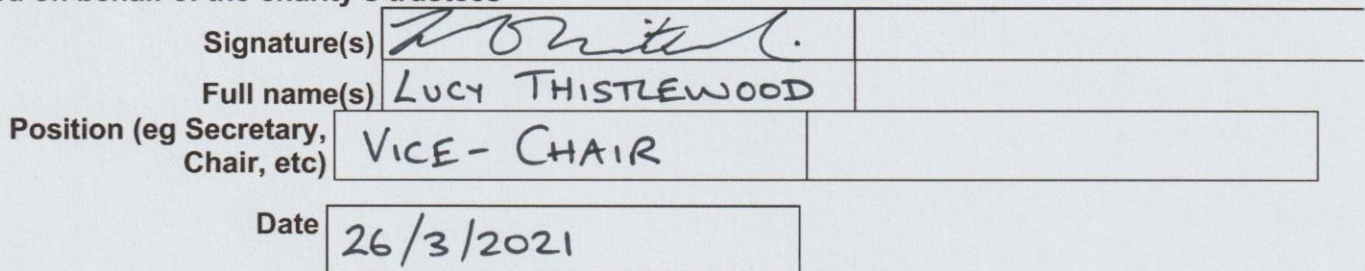 Signature(s)
Full name(s) LUCY THISTLEWOOD
Position (eg Secretary, Chair, etc) VICE-CHAIR
Date 26/3/2021